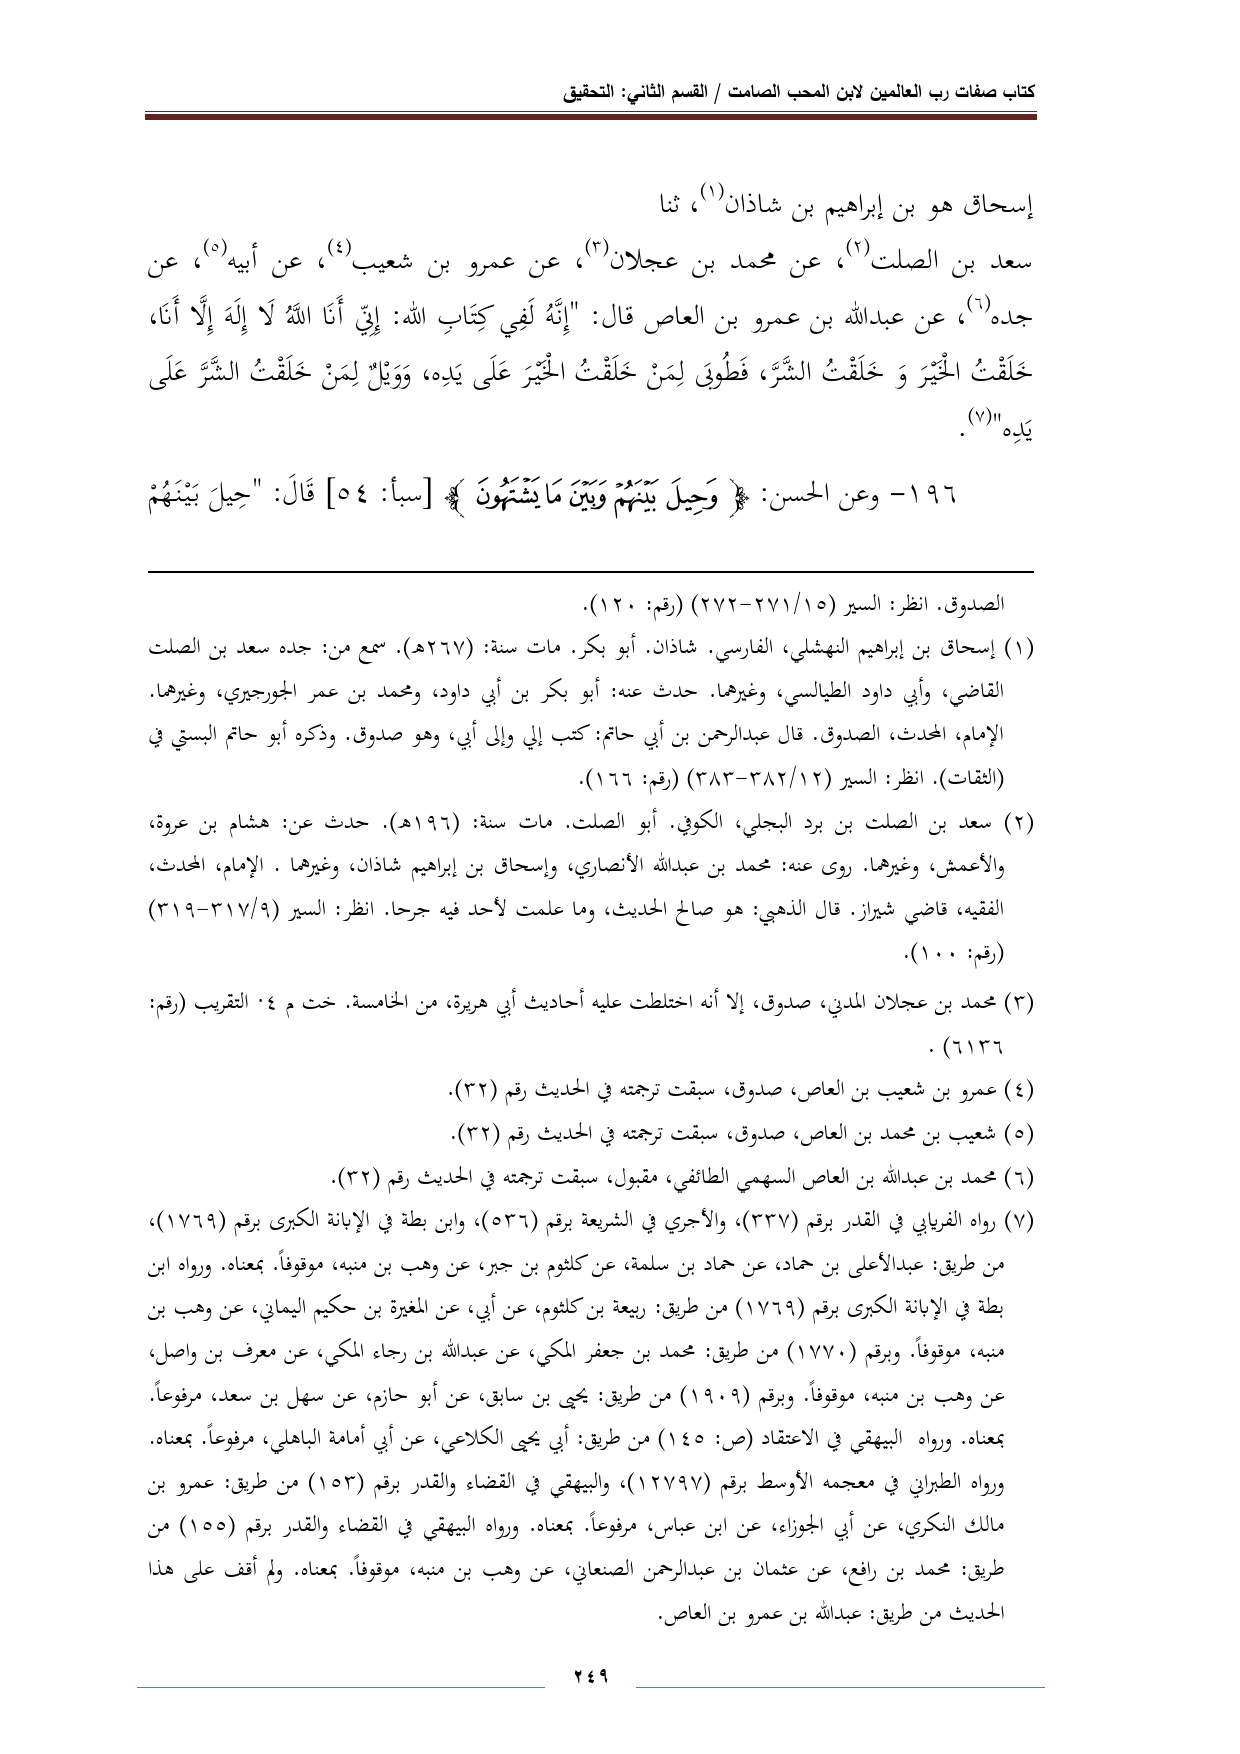 كتاب صفات رب العالمين لابن المحب الصامت / القسم الثاني: التحقيق
إسحاق هو بن إبراهيم بن شاذان(١)، ثنا
سعد بن الصلت(٢)، عن محمد بن عجلان(٣)، عن عمرو بن شعيب(٤)، عن أبيه(٥)، عن
جده(٦)، عن عبدالله بن عمرو بن العاص قال: "إِنَّهُ لَفِي كِتَابِ الله: إِنِّي أَنَا اللَّهُ لَا إِلَهَ إِلَّا أَنَا،
خَلَقْتُ الْخَيْرَ وَ خَلَقْتُ الشَّرَّ، فَطُوبَى لِمَنْ خَلَقْتُ الْخَيْرَ عَلَى يَدِه، وَوَيْلٌ لِمَنْ خَلَقْتُ الشَّرَّ عَلَى
يَدِه"(٧).
١٩٦- وعن الحسن: ﴿ وَحِيلَ بَيْنَهُمْ وَبَيْنَ مَا يَشْتَهُونَ ﴾ [سبأ: ٥٤] قَالَ: "حِيلَ بَيْنَهُمْ
الصدوق. انظر: السير (٢٧١/١٥-٢٧٢) (رقم: ١٢٠).
(١) إسحاق بن إبراهيم النهشلي، الفارسي. شاذان. أبو بكر. مات سنة: (٢٦٧هـ). سمع من: جده سعد بن الصلت
القاضي، وأبي داود الطيالسي، وغيرهما. حدث عنه: أبو بكر بن أبي داود، ومحمد بن عمر الجورجيري، وغيرهما.
الإمام، المحدث، الصدوق. قال عبدالرحمن بن أبي حاتم: كتب إلي وإلى أبي، وهو صدوق. وذكره أبو حاتم البستي في
(الثقات). انظر: السير (٣٨٢/١٢-٣٨٣) (رقم: ١٦٦).
(٢) سعد بن الصلت بن برد البجلي، الكوفي. أبو الصلت. مات سنة: (١٩٦هـ). حدث عن: هشام بن عروة،
والأعمش، وغيرهما. روى عنه: محمد بن عبدالله الأنصاري، وإسحاق بن إبراهيم شاذان، وغيرهما . الإمام، المحدث،
الفقيه، قاضي شيراز. قال الذهبي: هو صالح الحديث، وما علمت لأحد فيه جرحا. انظر: السير (٣١٧/٩-٣١٩)
(رقم: ١٠٠).
(٣) محمد بن عجلان المدني، صدوق، إلا أنه اختلطت عليه أحاديث أبي هريرة، من الخامسة. خت م ٤٠ التقريب (رقم:
٦١٣٦) .
(٤) عمرو بن شعيب بن العاص، صدوق، سبقت ترجمته في الحديث رقم (٣٢).
(٥) شعيب بن محمد بن العاص، صدوق، سبقت ترجمته في الحديث رقم (٣٢).
(٦) محمد بن عبدالله بن العاص السهمي الطائفي، مقبول، سبقت ترجمته في الحديث رقم (٣٢).
(٧) رواه الفريابي في القدر برقم (٣٣٧)، والأجري في الشريعة برقم (٥٣٦)، وابن بطة في الإبانة الكبرى برقم (١٧٦٩)،
من طريق: عبدالأعلى بن حماد، عن حماد بن سلمة، عن كلثوم بن جبر، عن وهب بن منبه، موقوفاً. بمعناه. ورواه ابن
بطة في الإبانة الكبرى برقم (١٧٦٩) من طريق: ربيعة بن كلثوم، عن أبي، عن المغيرة بن حكيم اليماني، عن وهب بن
منبه، موقوفاً. وبرقم (١٧٧٠) من طريق: محمد بن جعفر المكي، عن عبدالله بن رجاء المكي، عن معرف بن واصل،
عن وهب بن منبه، موقوفاً. وبرقم (١٩٠٩) من طريق: يحيى بن سابق، عن أبو حازم، عن سهل بن سعد، مرفوعاً.
بمعناه. ورواه البيهقي في الاعتقاد (ص: ١٤٥) من طريق: أبي يحيى الكلاعي، عن أبي أمامة الباهلي، مرفوعاً. بمعناه.
ورواه الطبراني في معجمه الأوسط برقم (١٢٧٩٧)، والبيهقي في القضاء والقدر برقم (١٥٣) من طريق: عمرو بن
مالك النكري، عن أبي الجوزاء، عن ابن عباس، مرفوعاً. بمعناه. ورواه البيهقي في القضاء والقدر برقم (١٥٥) من
طريق: محمد بن رافع، عن عثمان بن عبدالرحمن الصنعاني، عن وهب بن منبه، موقوفاً. بمعناه. ولم أقف على هذا
الحديث من طريق: عبدالله بن عمرو بن العاص.
٢٤٩